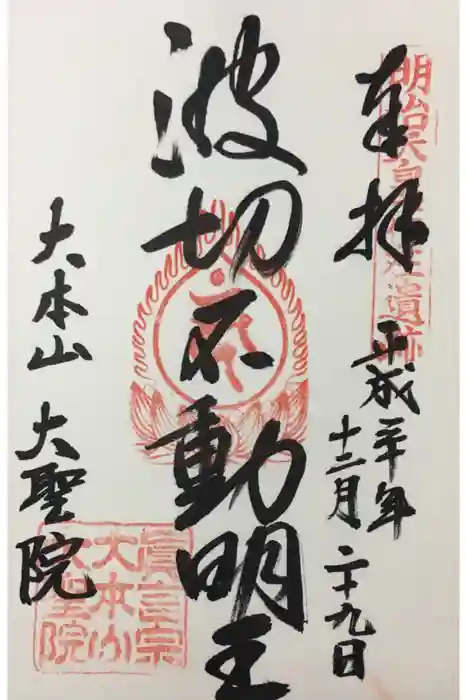 奉拝
平成二十年
十二月二十九日
波切不動明王
大本山 大聖院
明治天皇
遺跡
眞言宗
大本山
大聖院